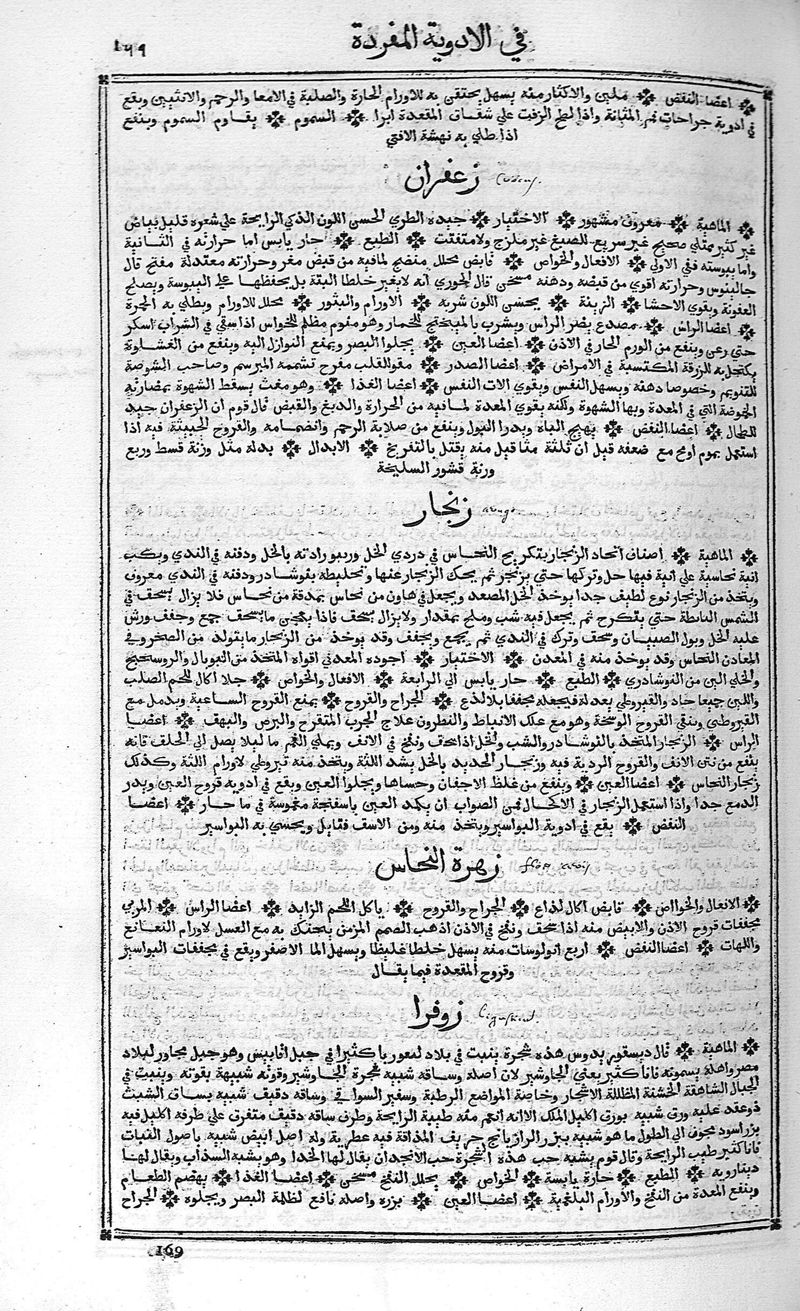 في الادوية المفردة ١٦٩
اعضا النفض ملين والاكثار منه يسهل يحتقن به للاورام الحارة والصلبة في الامعا والرحم والانثيين ويقع
في ادوية جراحات المثانة واذا لطخ الزفت علي شقاق المقعدة ابرا السموم يقاوم السموم وينفع
اذا طلي به نهشة الافعي
زعفران
الماهية معروف مشهور الاختيار جيده الطري الحسن اللون الذكي الرايحة علي شعره قليل بياض
غير كثير ممتلي صحيح غير سريع الصبغ غير ملزج ولا متفتت الطبع حار يابس اما حرارته في الثانية
واما يبوسته ففي الاولي الافعال والخواص قابض محلل منضج لما فيه من قبض مغر وحرارته معتدلة مفتح قال
جالينوس وحرارته اقوي من قبضه ودهنه مسخن قال الخوزي انه لا يغير خلطا البتة بل يحفظها علي السوية ويصلح
العفونة ويقوي الاحشا الزينة يحسن اللون شربه الاورام والبثور محلل للاورام ويطلي به الحمرة
اعضا الراس مصدع يضر الراس ويشرب بالميبختج للخمار وهو منوم مظلم للحواس اذا سقي في الشراب اسكر
حتي رعن وينفع من الورم الحار في الاذن اعضا العين يجلوا البصر ويمنع النوازل اليه وينفع من الغشاوة
يكتحل به للزرقة المكتسبة في الامراض اعضا الصدر مقو للقلب مفرح تشممه المبرسم وصاحب الشوصة
للتنويم وخصوصا دهنه ويسهل النفس ويقوي الات النفس اعضا الغذا وهو مغث يسقط الشهوة بمضادته
الحموضة التي في المعدة وبها الشهوة ولكنه يقوي المعدة لما فيه من الحرارة والدبغ والقبض قال قوم ان الزعفران جيد
للطحال اعضا النفض يهيج الباه ويدر البول وينفع من صلابة الرحم وانضمامه والقروح الخبيثة فيه اذا
استعمل بموم او مخ مع ضعفه قيل ان ثلثة مثاقيل منه يقتل بالتفريح الابدال بدله مثل وزنه قسط وربع
وزنه قشور السليخة
زنجار
الماهية اصناف اتخاذ الزنجار بتكريج النحاس في دردي الخل ورش برادته بالخل ودفنه في الندي وبكب
انية نحاسية علي انية فيها خل وتركها حتي يزنجر ثم يحك الزنجار عنها وتخليطه بنوشادر ودفنه في الندي معروف
ويتخذ من الزنجار نوع لطيف جدا يوخذ الخل المصعد ويجعل في هاون من نحاس بمدقة من نحاس فلا يزال يسحق في
الشمس القايظة حتي يتكرج ثم يجعل فيه شب وملح بمقدار ولا يزال يسحق فاذا جمع وجفف ورش
عليه الخل وبول الصبيان وسحق وترك في الندي ثم يجمع ويجفف وقد يوخذ من الزنجار ما يتولد من الصخر في
المعادن النحاس وقد يوخذ منه في المعدن الاختيار اجوده المعدني اقواه المتخذ من التوبال والروسختج
والخلي الين من النوشادري الطبع حار يابس الي الرابعة الافعال والخواص جلا اكال للحم الصلب
واللين جميعا حاد والقيروطي يعدله فيجعله مجففا بلا لذع الجراح والقروح يمنع القروح الساعية ويدمل مع
القيروطي وينقي القروح الوسخة وهو مع علك الانباط والنطرون علاج الجرب المتقرح والبرص والبهق اعضا
الراس الزنجار المتخذ بالنوشادر والشب والخل اذا سحق ونفخ في الانف ويملي الفم ما ليلا يصل الي الحلق فانه
ينفع من نتن الانف والقروح الردية فيه وزنجار الحديد بالخل يشد اللثة ويتخذ منه قيروطي لاورام اللثة وكذلك
زنجار النحاس اعضا العين وينفع من غلظ الاجفان وجساها ويجلوا العين ويقع في ادوية قروح العين ويدر
الدمع جدا واذا استعمل الزنجار في الاكحال فمن الصواب ان يكمد العين باسفنجة مغموسة في ما حار اعضا
النفض يقع في ادوية البواسير ويتخذ منه ومن الاشق فتايل ويحشي به البواسير
زهرة النحاس
الافعال والخواص قابض اكال لذاع الجراح والقروح ياكل اللحم الزايد اعضا الراس المربي
مجففات قروح الاذن والابيض منه اذا سحق ونفخ في الاذن اذهب الصمم المزمن يحنك به مع العسل لاورام النغانغ
واللهات اعضا النفض اربع انولوسات منه يسهل خلطا غليظا ويسهل الما الاصفر ويقع في مجففات البواسير
وقروح المقعدة فيما يقال
زوفرا
الماهية قال ديسقوريدوس هذه شجرة ينبت في بلاد لنغوريا كثيرا في جبل افانيس وهو جبل مجاور لبلاد
مصر واهله يسمونه فاناكثير يعني الجاوشير لان اصله وساقه شبيه بشجرة الجاوشير وقوته شبيهة بقوته وينبت في
الجبال الشاهقة الخشنة المظللة الاشجار وخاصة المواضع الرطبة وسفير السواقي وساقه دقيق شبيه بساق الشبث
ذو عقد عليه ورق شبيه بورق اكليل الملك الا انه انعم منه طيبة الرايحة وطرف ساقه دقيق متفرق علي طرفه اكليل فيه
بزر اسود مجوف الي الطول ما هو شبيه ببزر الرازيانج حريف المذاقة فيه عطرية وله اصل ابيض شبيه باصول النبات
فاناكثير طيب الرايحة وقال قوم يشبه حب هذه الشجرة حب الانجدان يقال لها الخدا وهو يشبه السذاب ويقال لها
دينارويه الطبع حارة يابسة الخواص يحلل النفخ مسخن اعضا الغذا يهضم الطعام
وينفع المعدة من النفخ والاورام البلغمية اعضا العين بزره واصله نافع لظلمة البصر ويجلوه الجراح
169